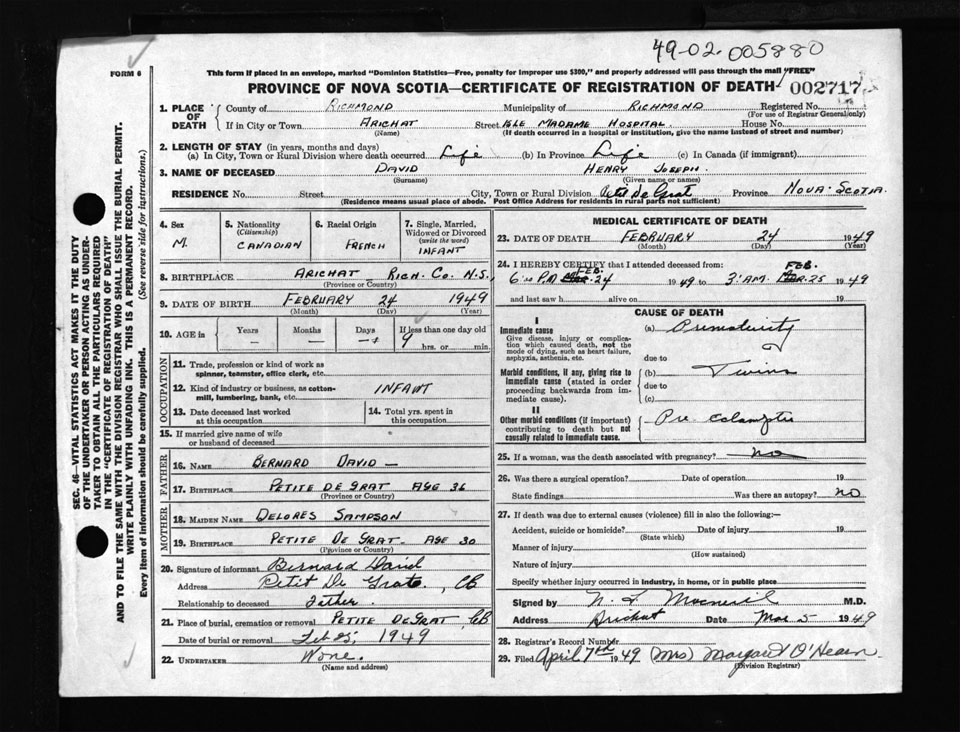 49-02-005880
FORM 6
This form if placed in an envelope, marked "Dominion Statistics—Free, penalty for improper use $300," and properly addressed will pass through the mail "FREE"
PROVINCE OF NOVA SCOTIA—CERTIFICATE OF REGISTRATION OF DEATH 002717
1. PLACE OF DEATH
County of RICHMOND Municipality of RICHMOND Registered No.
(For use of Registrar General only)
If in City or Town ARICHAT Street ISLE MADAME HOSPITAL House No.
(Name) (If death occurred in a hospital or institution, give the name instead of street and number)
2. LENGTH OF STAY (in years, months and days)
(a) In City, Town or Rural Division where death occurred Life (b) In Province Life (c) In Canada (if immigrant)
3. NAME OF DECEASED DAVID HENRY JOSEPH.
(Surname) (Given name or names)
RESIDENCE No. Street City, Town or Rural Division Petit De Grat Province NOVA-SCOTIA.
(Residence means usual place of abode. Post Office Address for residents in rural parts not sufficient)
SEC. 46—VITAL STATISTICS ACT MAKES IT THE DUTY
OF THE UNDERTAKER OR PERSON ACTING AS UNDER-
TAKER TO OBTAIN ALL THE PARTICULARS REQUIRED
IN THE "CERTIFICATE OF REGISTRATION OF DEATH"
AND TO FILE THE SAME WITH THE DIVISION REGISTRAR WHO SHALL ISSUE THE BURIAL PERMIT.
WRITE PLAINLY WITH UNFADING INK. THIS IS A PERMANENT RECORD.
Every item of information should be carefully supplied. (See reverse side for instructions.)
4. Sex
M.
5. Nationality
(Citizenship)
CANADIAN
6. Racial Origin
FRENCH
7. Single, Married,
Widowed or Divorced
(write the word)
INFANT
8. BIRTHPLACE ARICHAT RICH. CO. N.S.
(Province or Country)
9. DATE OF BIRTH FEBRUARY 24 1949
(Month) (Day) (Year)
10. AGE in Years Months Days If less than one day old
9 hrs. or min.
OCCUPATION
11. Trade, profession or kind of work as
spinner, teamster, office clerk, etc.
12. Kind of industry or business, as cotton-
mill, lumbering, bank, etc. INFANT
13. Date deceased last worked
at this occupation
14. Total yrs. spent in
this occupation
15. If married give name of wife
or husband of deceased
FATHER
16. NAME BERNARD DAVID —
17. BIRTHPLACE PETITE DE GRAT AGE 36
(Province or Country)
MOTHER
18. MAIDEN NAME DELORES SAMPSON
19. BIRTHPLACE PETITE DE GRAT- AGE 30
(Province or Country)
20. Signature of informant Bernard David
Address Petit De Grate, CB
Relationship to deceased Father.
21. Place of burial, cremation or removal PETITE DEGRAT, CB
Date of burial or removal Feb 25, 1949
22. UNDERTAKER None.
(Name and address)
MEDICAL CERTIFICATE OF DEATH
23. DATE OF DEATH FEBRUARY 24 1949
(Month) (Day) (Year)
24. I HEREBY CERTIFY that I attended deceased from: FEB.
6:00 P.M FEB. 24 1949 to 3:AM. MAR. 25 1949
and last saw h alive on 19
CAUSE OF DEATH
I
Immediate cause
Give disease, injury or complica-
tion which caused death, not the
mode of dying, such as heart failure,
asphyxia, asthenia, etc.
(a) Prematurity
due to
Morbid conditions, if any, giving rise to
immediate cause (stated in order
proceeding backwards from im-
mediate cause).
(b) Twins
due to
(c)
II
Other morbid conditions (if important)
contributing to death but not
causally related to immediate cause.
Pre eclampsia
25. If a woman, was the death associated with pregnancy? no
26. Was there a surgical operation? Date of operation 19
State findings Was there an autopsy? no
27. If death was due to external causes (violence) fill in also the following:—
Accident, suicide or homicide? Date of injury 19
(State which)
Manner of injury
(How sustained)
Nature of injury
Specify whether injury occurred in industry, in home, or in public place
Signed by M.D.
Address Arichat Date Mar 5 1949
28. Registrar's Record Number
29. Filed April 7th 1949 (Mrs) Margaret O'Hearn
(Division Registrar)